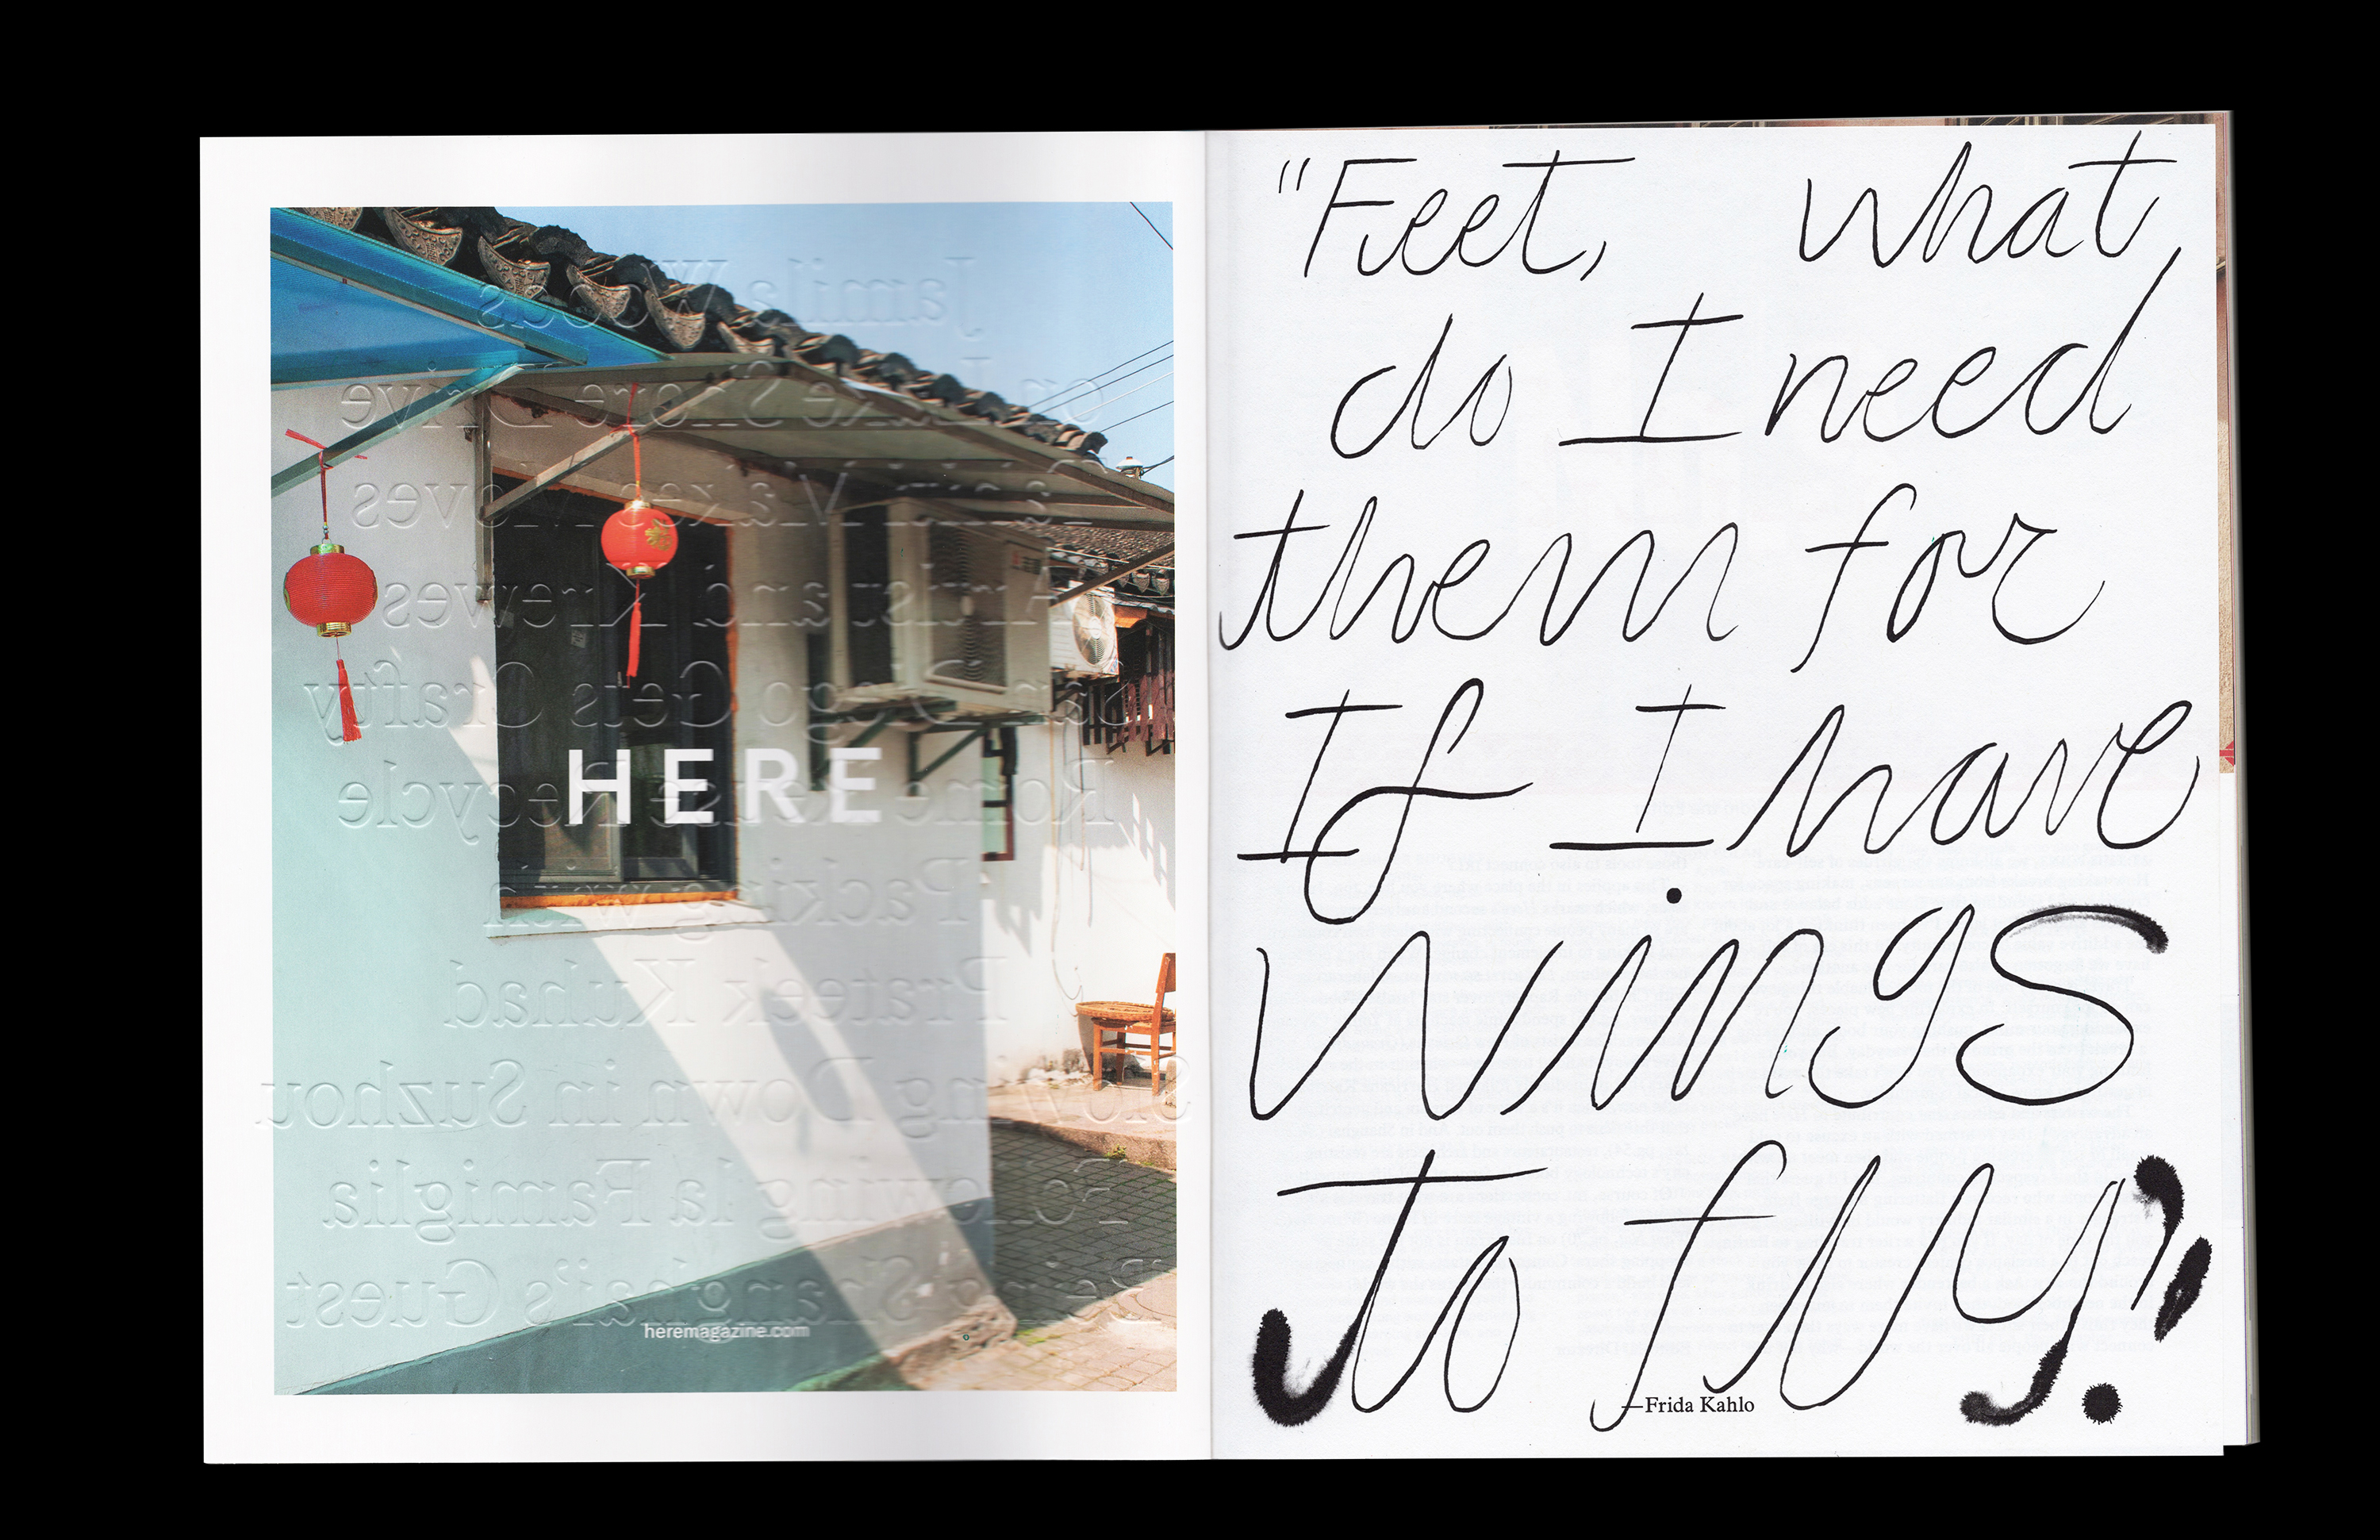 Jamila Woods
on Lake Shore Drive
Makes Moves
Artist and Krewes
San Diego Gets Crafty
Rome Recycle
HERE
Packing with
Prateek Kuhad
Slowing Down in Suzhou
Following la Famiglia
Being Shanghai's Guest
heremagazine.com
“Feet, what
do I need
them for
If I have
wings
to fly.”
—Frida Kahlo